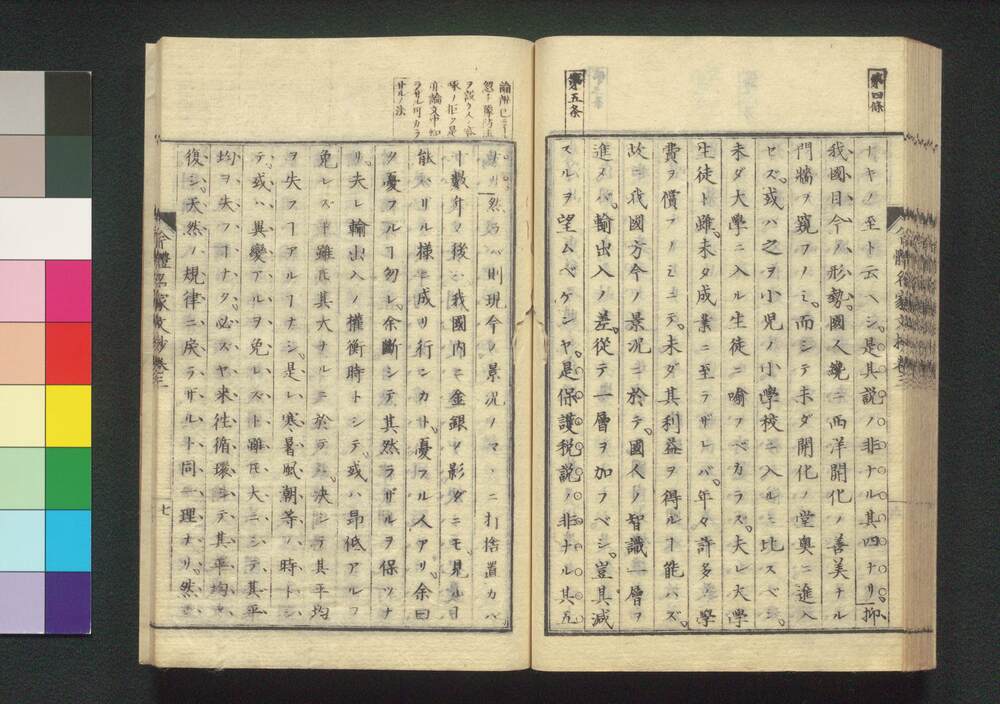 第四條
ナキノ至ト云ヘシ。是其説ノ非ナル其四ナリ。抑
我國日今ノ形勢。國人纔ニ西洋開化ノ善美ナル
門牆ヲ窺フノミ。而シテ未ダ開化ノ堂奥ニ進入
セズ。或ハ之ヲ小児ノ小學校ニ入ルニ比スベシ。
未ダ大學ニ入ル生徒ニ喻フベカラス。夫レ大学
生徒ト雖。未タ成業ニ至ラザレバ。年々許多ノ學
費ヲ償フノミニテ。未ダ其利益ヲ得ルヿ能ハズ。
故ニ我國方今ノ景況ニ於テ。國人ノ智識一層ヲ
進メバ。輸出入ノ差。從テ一層ヲ加フベシ。豈其減
スルヲ望ムベケンヤ。是保護税説ノ非ナル其五
第五条
ナリ。然ラバ則現今ノ景況ノママニ打捨置カバ
十數年ノ後ハ我國内ニ金銀ノ影ダニモ。見ル目
能ハザル様ニ成リ行ンカト。憂フル人アリ。余曰
ク憂フルヿ勿レ。余斷シテ其然ラザルヲ保ツナ
リ。夫レ輸出入ノ權衡時トシテ。或ハ昂低アルヿ
免レズト雖𪜈其大ナルニ於テハ。决シテ其平均
ヲ失フヿアルヿナシ。是レ寒暑風朝等ノ。時トシ
テ。或ハ異變アルヲ免レスト雖𪜈大ニシテ其平
均ヲ失フヿナク。必ズヤ来往循環シテ。其平均ヲ
復シ。天然ノ規律ニ戻ラザルト同一理ナリ。然
七